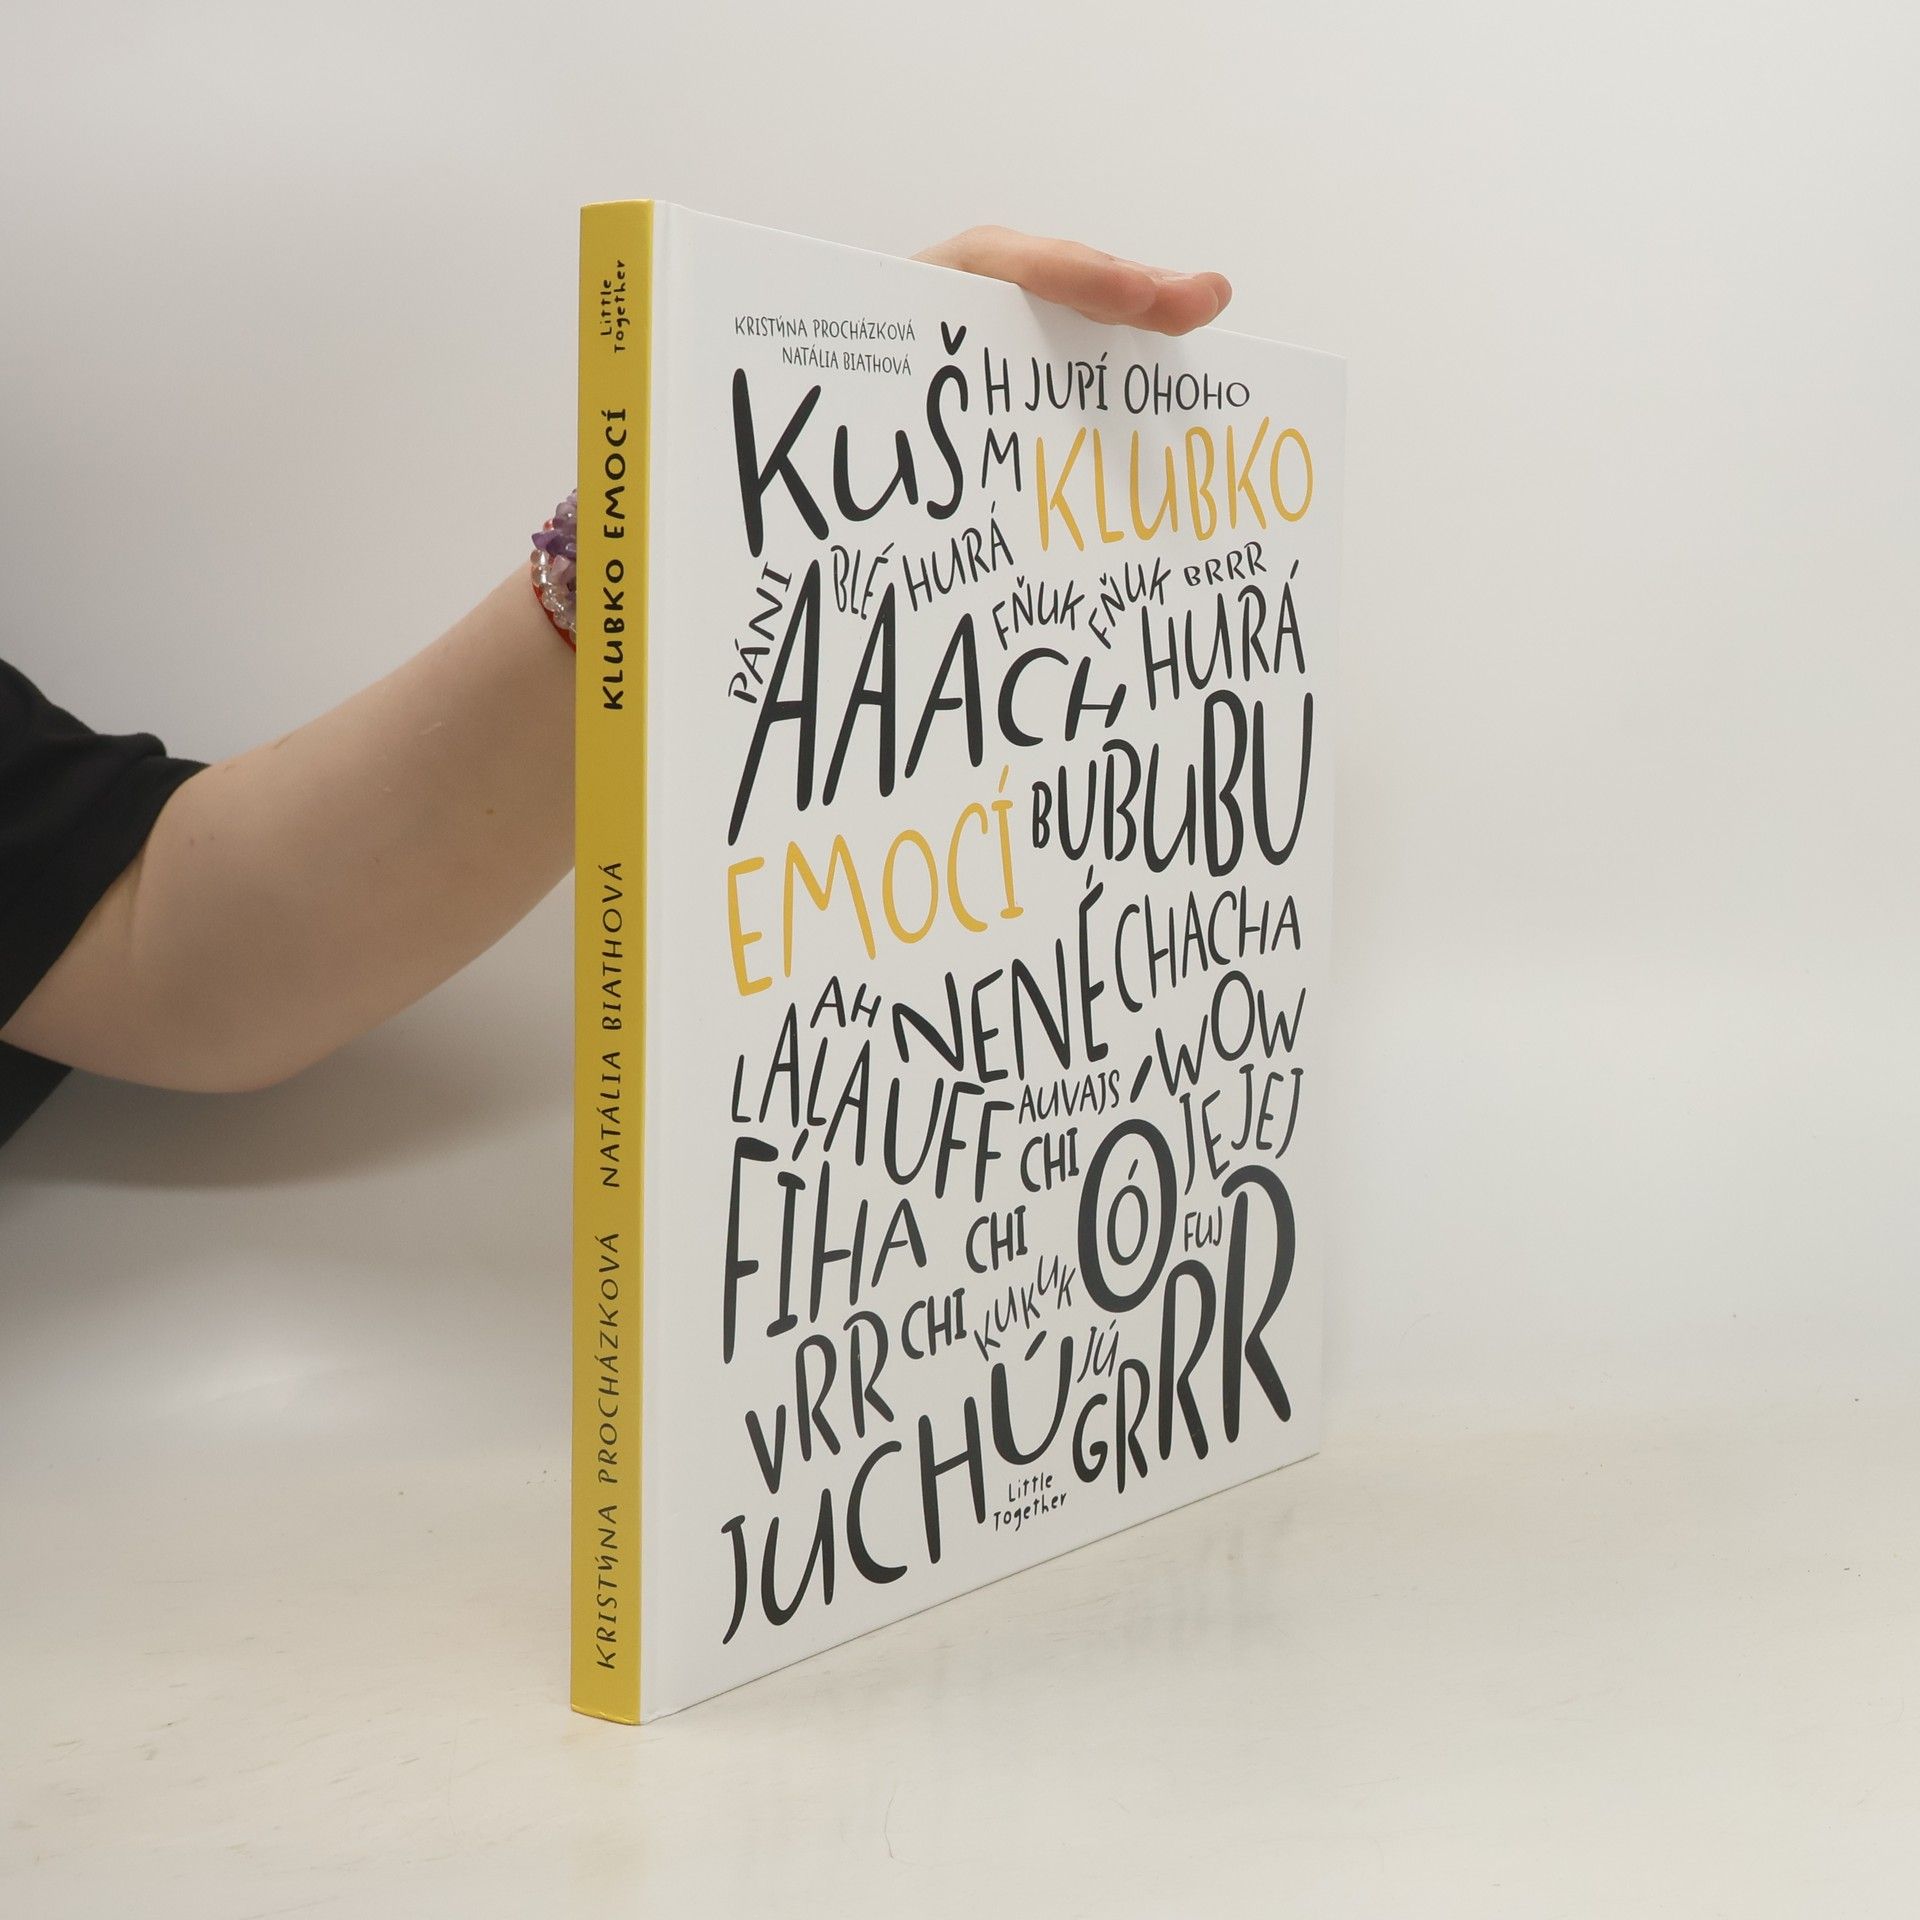 Little
Together
KLUBKO EMOCÍ
NATÁLIA BIATHOVÁ
KRISTÝNA PROCHÁZKOVÁ
KRISTÝNA PROCHÁZKOVÁ
NATÁLIA BIATHOVÁ
KUŠ HM JUPÍ OHOHO
KLUBKO
PÁNI BLÉ HURÁ FŇUK FŇUK BRRR
AAACH HURÁ
EMOCÍ BUBUBU
AH NENÉ CHACHA
LALA UFF AUVAJS WOW
FÍHA CHI Ó JEJEJ
CHI FUJ
VRR CHI KUKUK JÚ GRRR
JUCHÚ
Little
Together